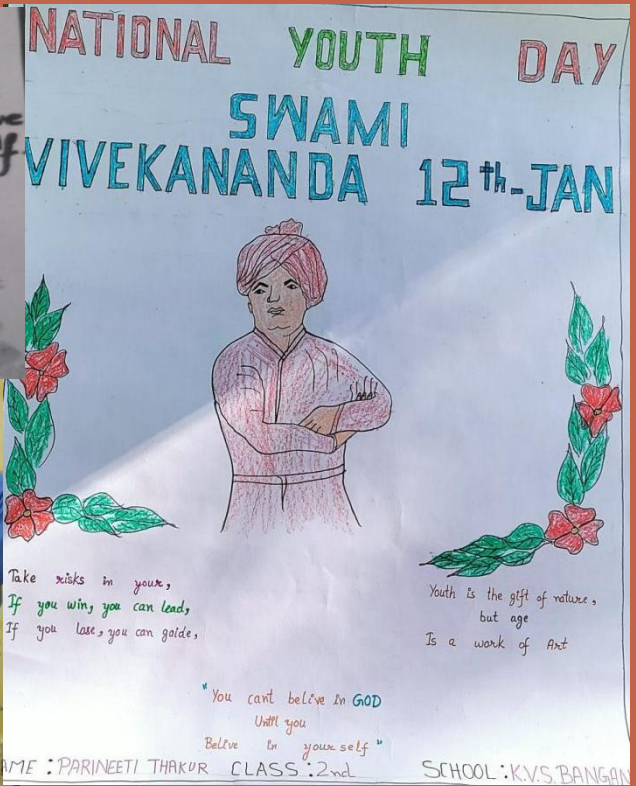 NATIONAL YOUTH DAY
SWAMI
VIVEKANANDA 12th-JAN
Take risks in your,
If you win, you can lead,
If you lose, you can goide,
Youth is the gift of nature,
but age
Is a work of Art
"You cant belive in GOD
Until you
Belive in yourself"
AME : PARINEETI THAKUR CLASS : 2nd SCHOOL : K.V.S. BANGAN